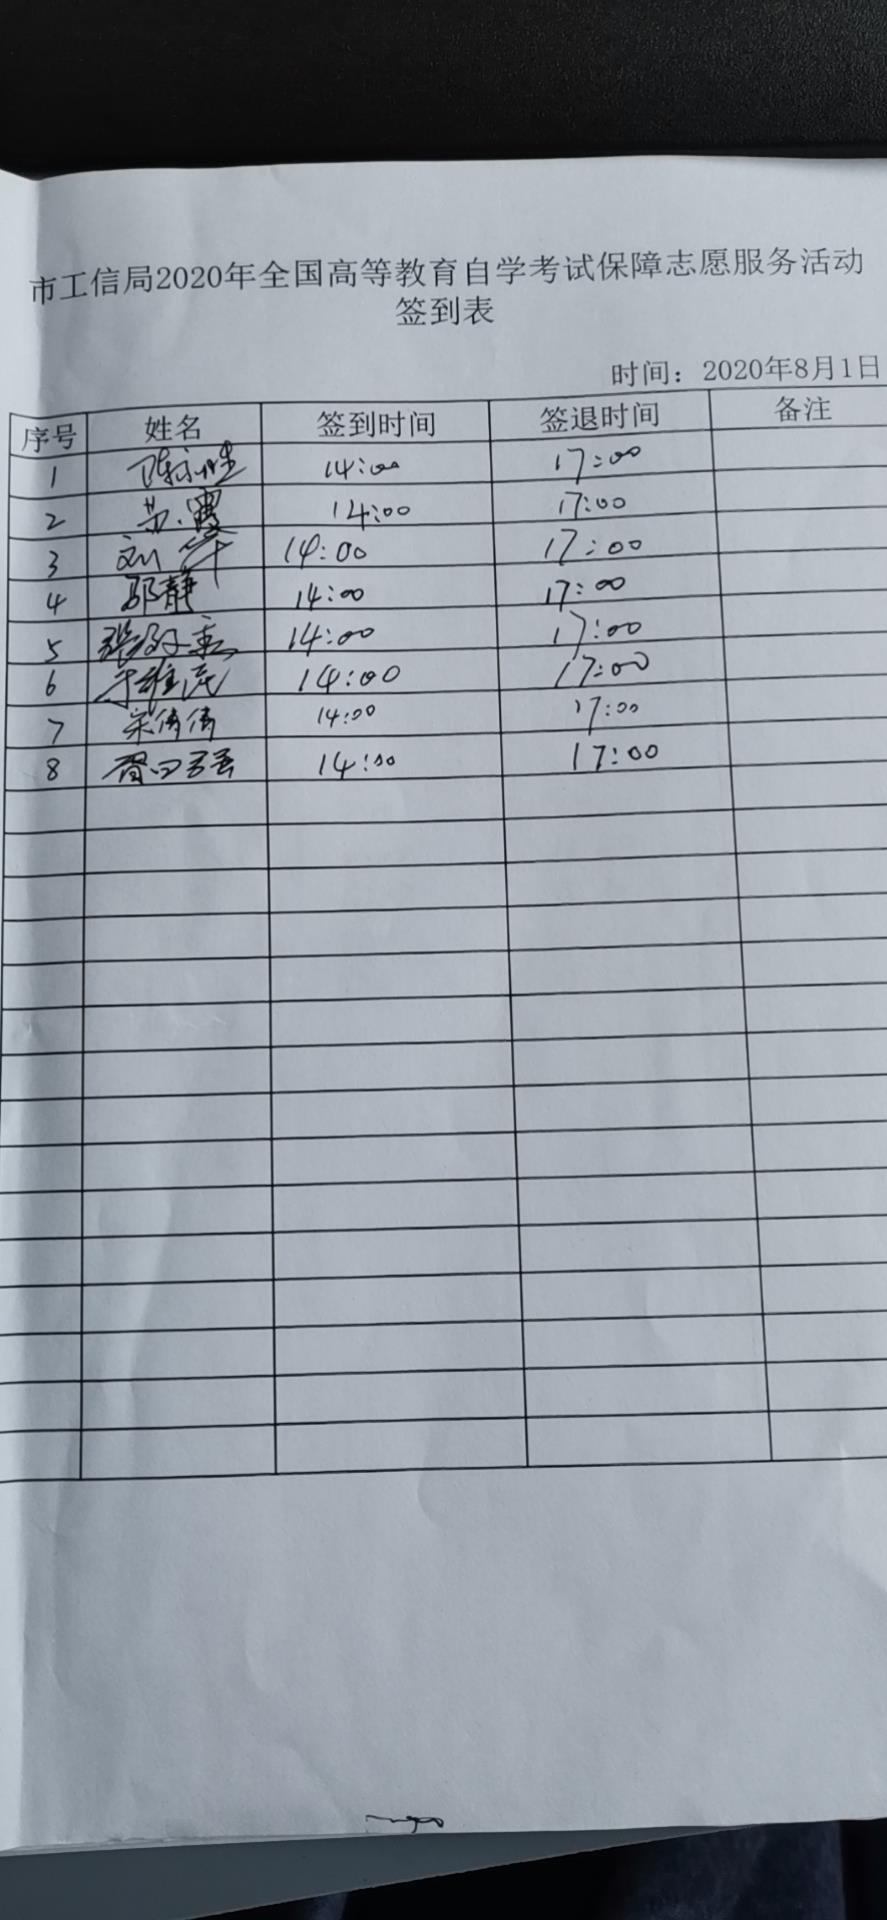 市工信局2020年全国高等教育自学考试保障志愿服务活动
签到表
时间：2020年8月1日
序号 姓名 签到时间 签退时间 备注
1 14:00 17:00
2 14:00 17:00
3 刘华 14:00 17:00
4 邬静 14:00 17:00
5 14:00 17:00
6 14:00 17:00
7 宋倩倩 14:00 17:00
8 14:00 17:00